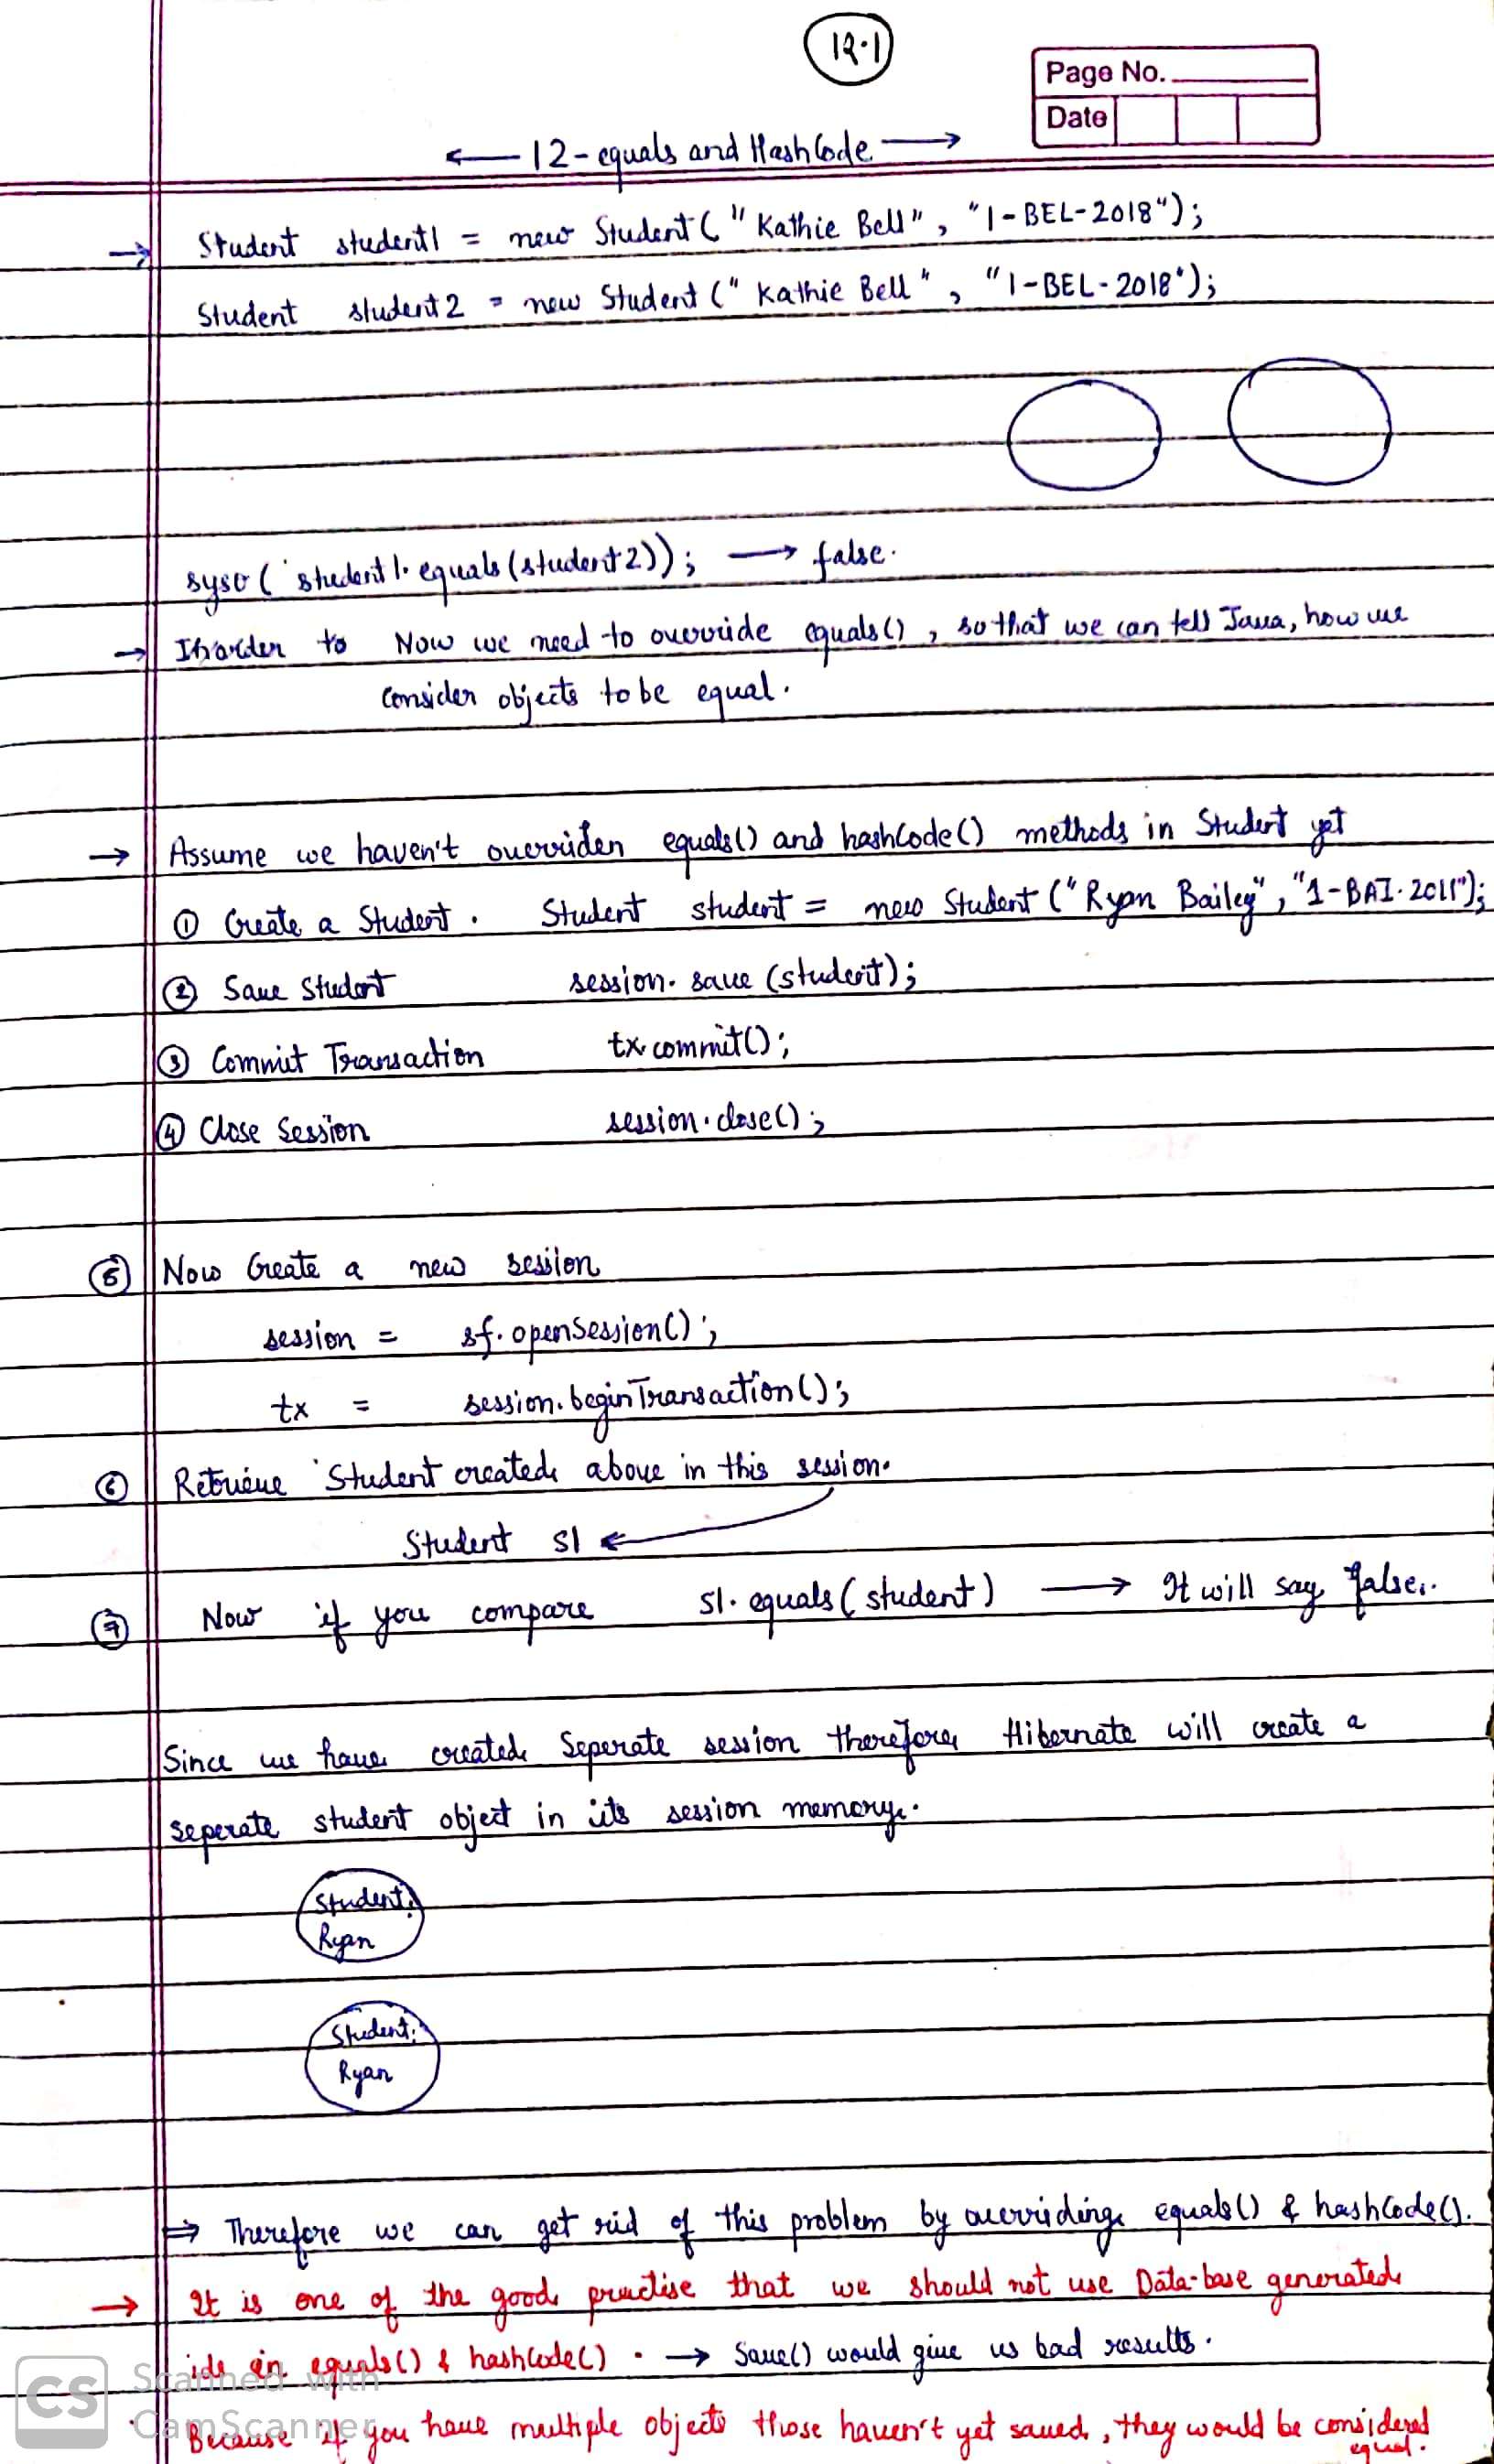 12.1
Page No.
Date
← 12- equals and HashCode →
→ Student student1 = new Student ( "Kathie Bell" , "1-BEL-2018");
Student student2 = new Student (" Kathie Bell " , "1-BEL-2018");
syso ( student1. equals (student2)); → false.
→ Inorder to Now we need to override equals() , so that we can tell Java, how we
consider objects to be equal.
→ Assume we haven't overriden equals() and hashCode() methods in Student yet
① Create a Student . Student student = new Student ("Ryan Bailey" , "1-BAI-2011");
② Save Student session. save (student);
③ Commit Transaction tx.commit();
④ Close Session session.close();
⑤ Now Create a new session
session = sf. openSession();
tx = session. beginTransaction();
⑥ Retrieve Student created above in this session.
Student s1 ←
⑦ Now if you compare s1. equals ( student ) → It will say false.
Since we have created Seperate session therefore Hibernate will create a
seperate student object in its session memory.
Student:
Ryan
Student:
Ryan
⇒ Therefore we can get rid of this problem by overriding equals() & hashCode().
→ It is one of the good practise that we should not use Data-base generated
ids in equals() & hashCode() . → Save() would give us bad results.
Because if you have multiple objects those haven't yet saved , they would be considered
equal.
CS Scanned with
CamScanner